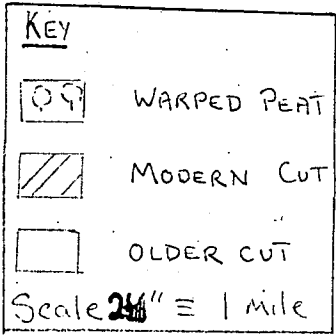 KEY
WARPED PEAT
MODERN CUT
OLDER CUT
Scale " ≡ 1 Mile